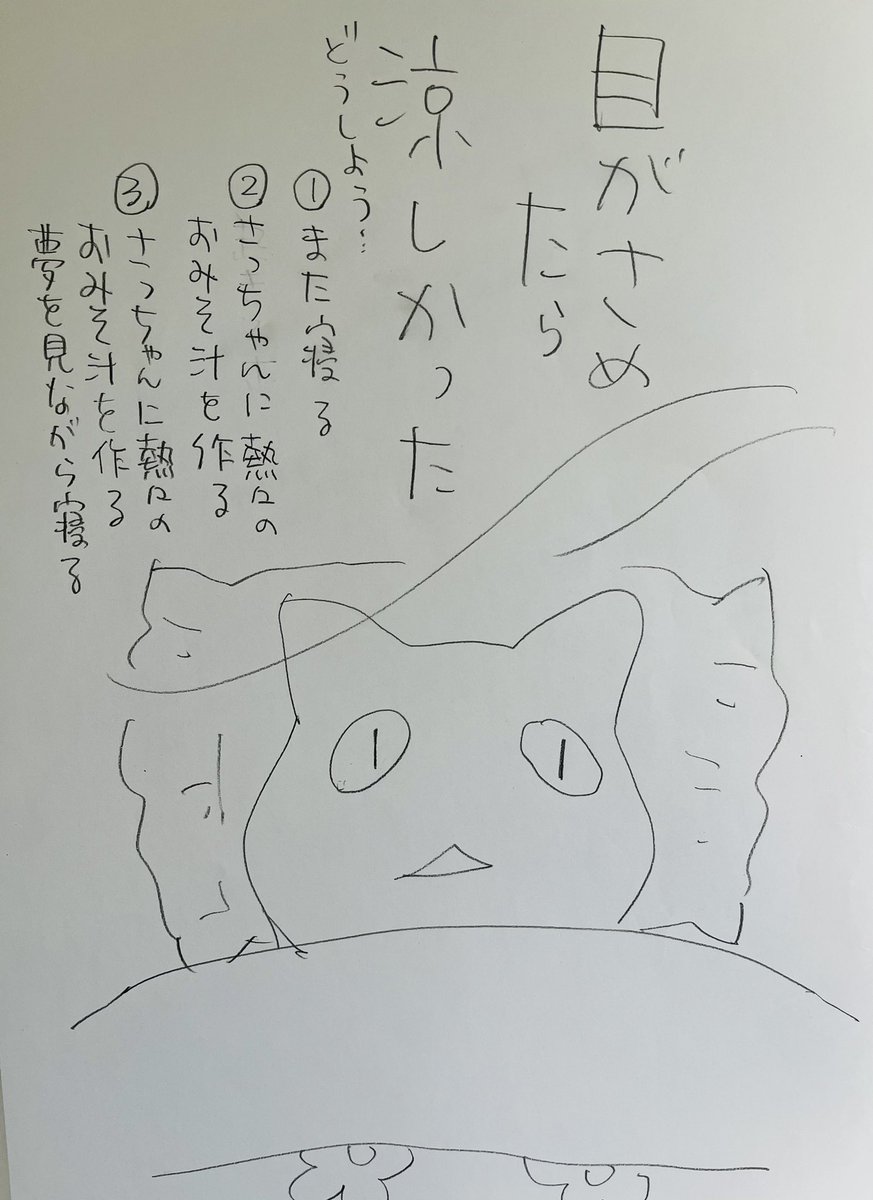 目がさめ
たら
涼しかった
どうしよう…
①また寝る
②さっちゃんに熱々の
おみそ汁を作る
③さっちゃんに熱々の
おみそ汁を作る
夢を見ながら寝る